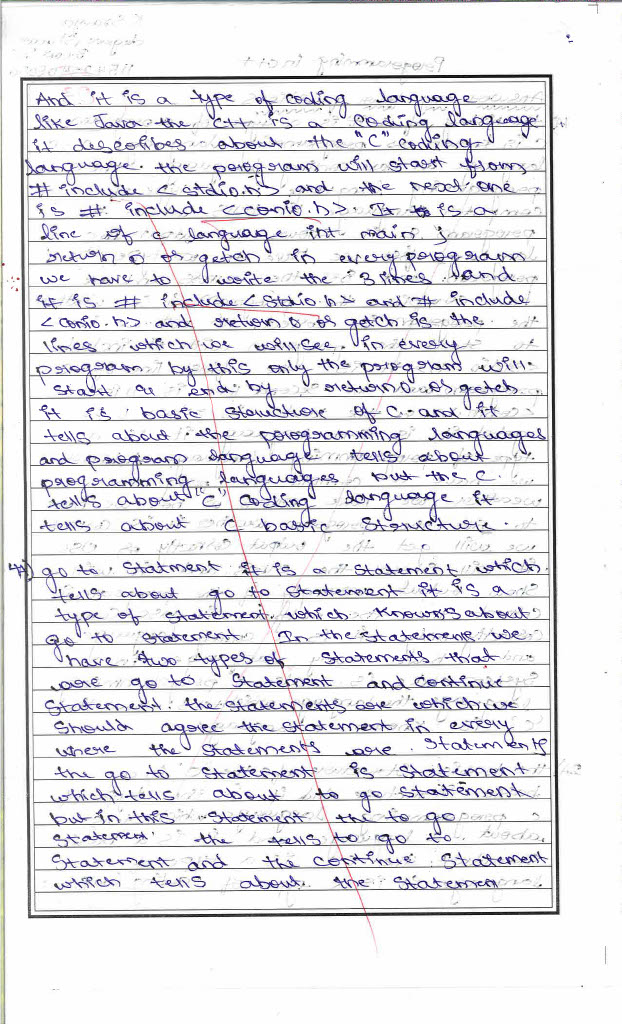 And it is a type of coding language
like Java the C++ is a coding language
it describes about the "C" coding
language. the program will start from
# include < stdio.h> and the next one
is # include <conio.h>. It is a
line of c language int main j
return 0 or getch in every program
we have to write the 3 lines and
it is # include < Stdio.h> and # include
< conio.h> and return 0 or getch is the
lines which we will see in every
program by this only the program will
start end by return 0 or getch
it is basic structure of C and it
tells about the programming languages
and program language tells about
programming languages but the C
tells about "C" coding language it
tells about C basic structure.
4) go to Statment it is a statement which
tells about go to statement it is a
type of statement which knows about
go to statement In the statement we
have two types of statements that
are go to statement and continue
Statement. the statements are which we
should agree the statement in every
where the statements are. Statements
the go to statement is statement
which tells about to go statement
but in this statement the to go
statement the tells to go to
Statement and the continue statement
which tells about the statemen